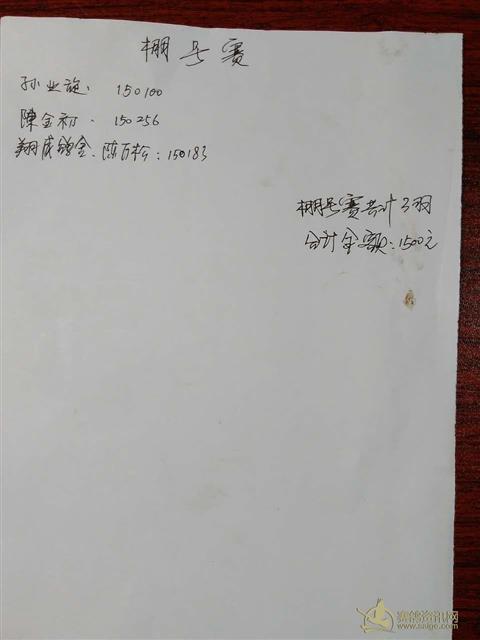 棚号赛
孙业旋. 150100
陳金初. 150256
翔成鸽舍.陈万松:150183
棚号赛共计3羽
合计金额:1500元
赛鸽资讯网
www.saige.com